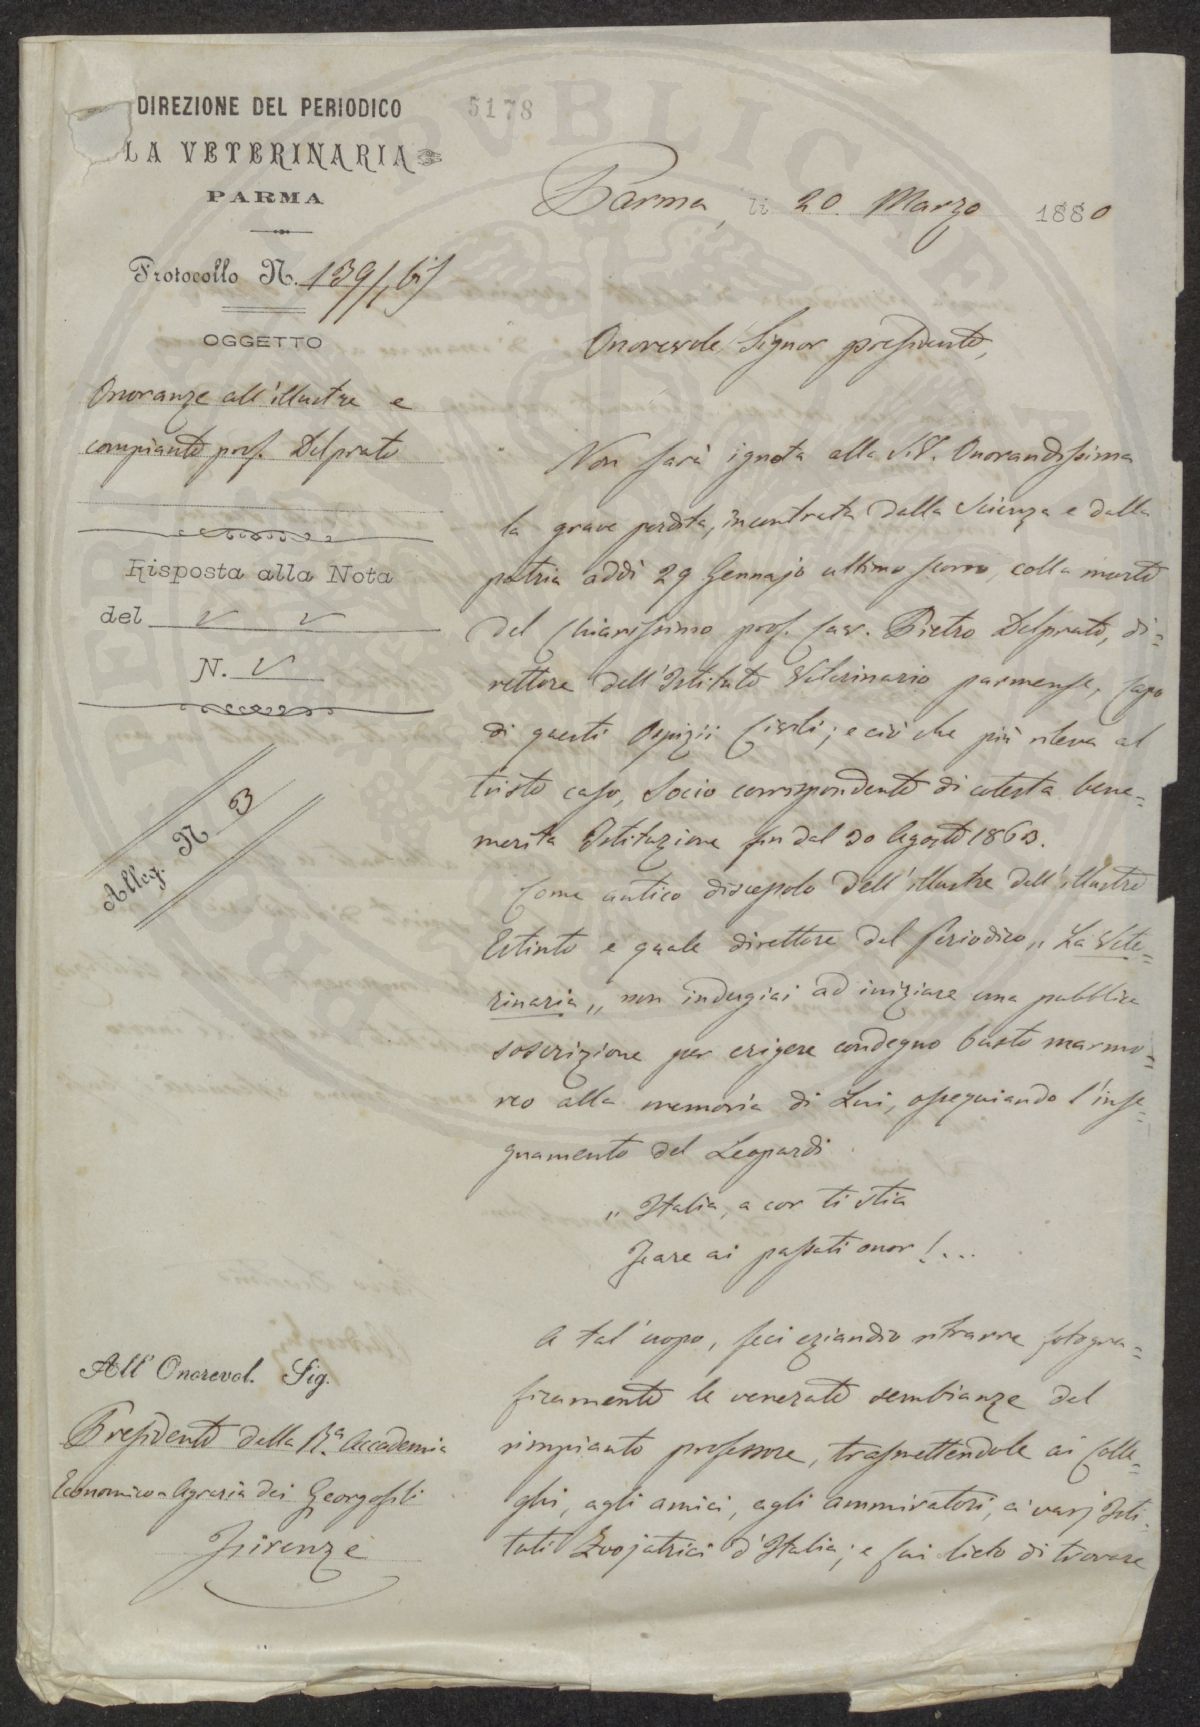 DIREZIONE DEL PERIODICO
LA VETERINARIA
PARMA
Protocollo N. 139/bis
OGGETTO
Onoranze all'illustre e
compianto prof. Delprato
Risposta alla Nota
del
N.
Alleg. N 3
All' Onorevol. Sig.
Presidente della R.a Accademia
Economico-Agraria dei Georgofili
Firenze
5178
Parma, li 20 Marzo 1880
Onorevole Signor presidente,
Non sarà ignota alla S.V. Onorandissima
la grave perdita, incontrata dalla Scienza e dalla
patria addì 29 Gennajo ultimo scorso, colla morte
del Chiarissimo prof. Cav. Pietro Delprato, di=
rettore dell'Istituto Veterinario parmense, Capo
di questi Ospizii Civili; e ciò che più rileva al
tristo caso, Socio corrispondente di cotesta bene=
merita Istituzione fin dal 30 Agosto 1863.
Come antico discepolo dell'illustre dell'illustre
Estinto e quale direttore del periodico „La Vete=
rinaria„ non indugiai ad iniziare una pubblica
soscrizione per erigere condegno busto marmo=
reo alla memoria di Lui, ossequiando l'inse=
gnamento del Leopardi
„ Italia, a cor ti stia
Fare ai passati onor!...
A tal'uopo, feci eziandio ritrarre fotogra=
ficamente le venerate sembianze del
rimpianto professore, trasmettendole ai Colle=
ghi, agli amici, agli ammiratori, ai varj Isti=
tuti Zoojatrici d'Italia; e fui lieto di trovare